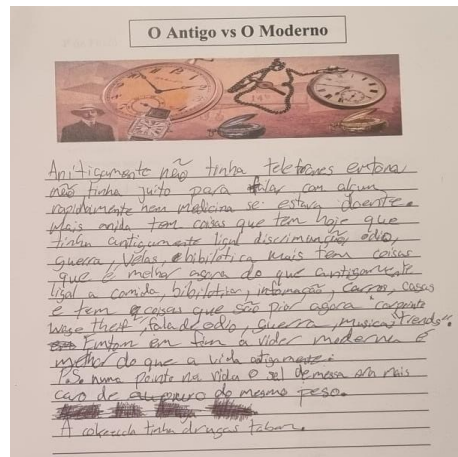 O Antigo vs O Moderno
Anitigamente não tinha telefones então
não tinha juito para falar com algun
rapidamente nem medicina se estava doente.
Mais tem coisas que tem hoje que
tinha antigamente ligal discriminação, ódio,
guerra, Velas, e bibilotica mais tem coisas
que é melhor agora do que antigamente
ligal a comida, bibilotica, informação, carros, casas
e tem coisas que são pior agora
wage theft, fala de odio, guerra, musica, "Trends".
em fim a vider moderna é
melhor do que a vida antigamente.
numa pointo na vida o sel de messa era mais
caro de do mesmo peso.
A tinha drugas tabem.